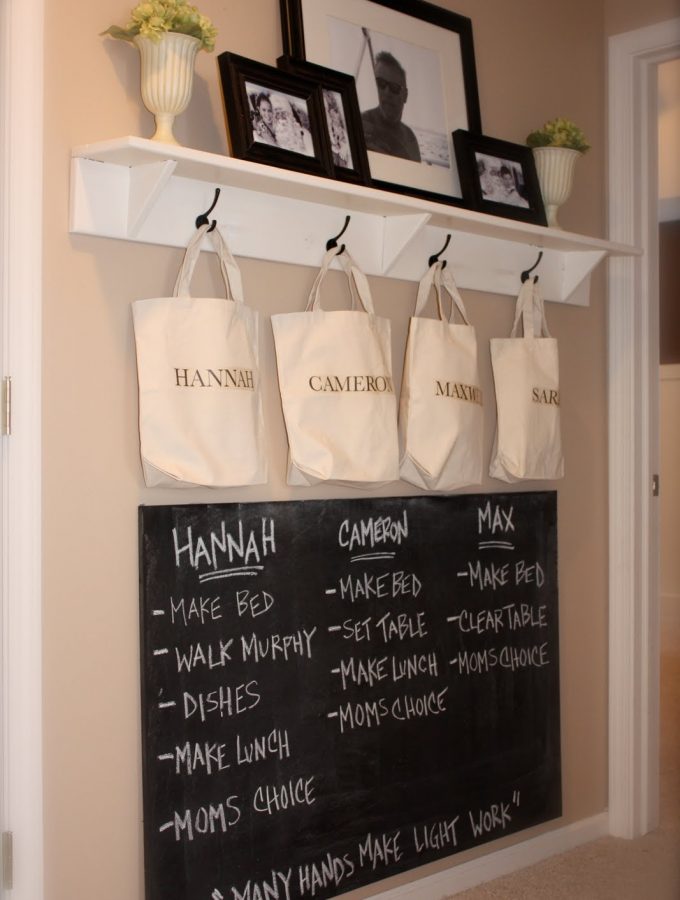 HANNAH
CAMERON
MAXWE
SAR
HANNAH
-MAKE BED
-WALK MURPHY
-DISHES
-MAKE LUNCH
-MOMS CHOICE
CAMERON
-MAKE BED
-SET TABLE
-MAKE LUNCH
-MOMS CHOICE
MAX
-MAKE BED
-CLEAR TABLE
-MOMS CHOICE
"MANY HANDS MAKE LIGHT WORK"